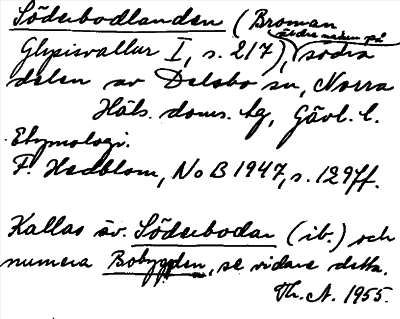 Söderbodlanden (Broman
äldre namn på
Glysisvallur I, s. 217), södra
delen av Delsbo sn, Norra
Häls. doms. hg, Gävl. l.
Etymologi.
F. Hedblom, NoB 1947, s. 129ff.
Kallas äv. Söderbodar (ib.) och
numera Bobygden, se vidare detta.
Th. A. 1955.